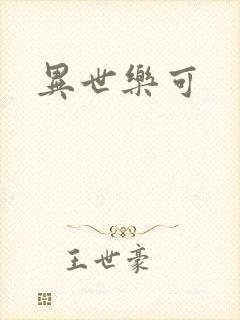 異世樂可
王世豪